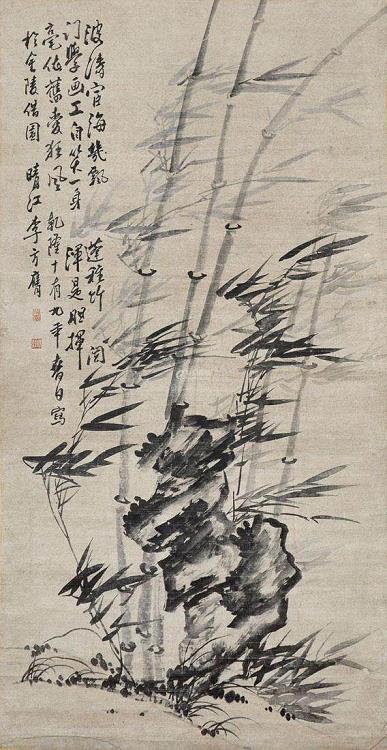 波濤宦海幾飄蓬種竹関
门學画工自笑一身渾是胆揮
毫依舊愛狂風 乾隆十有九年春日寫
於金陵借園 晴江李方膺